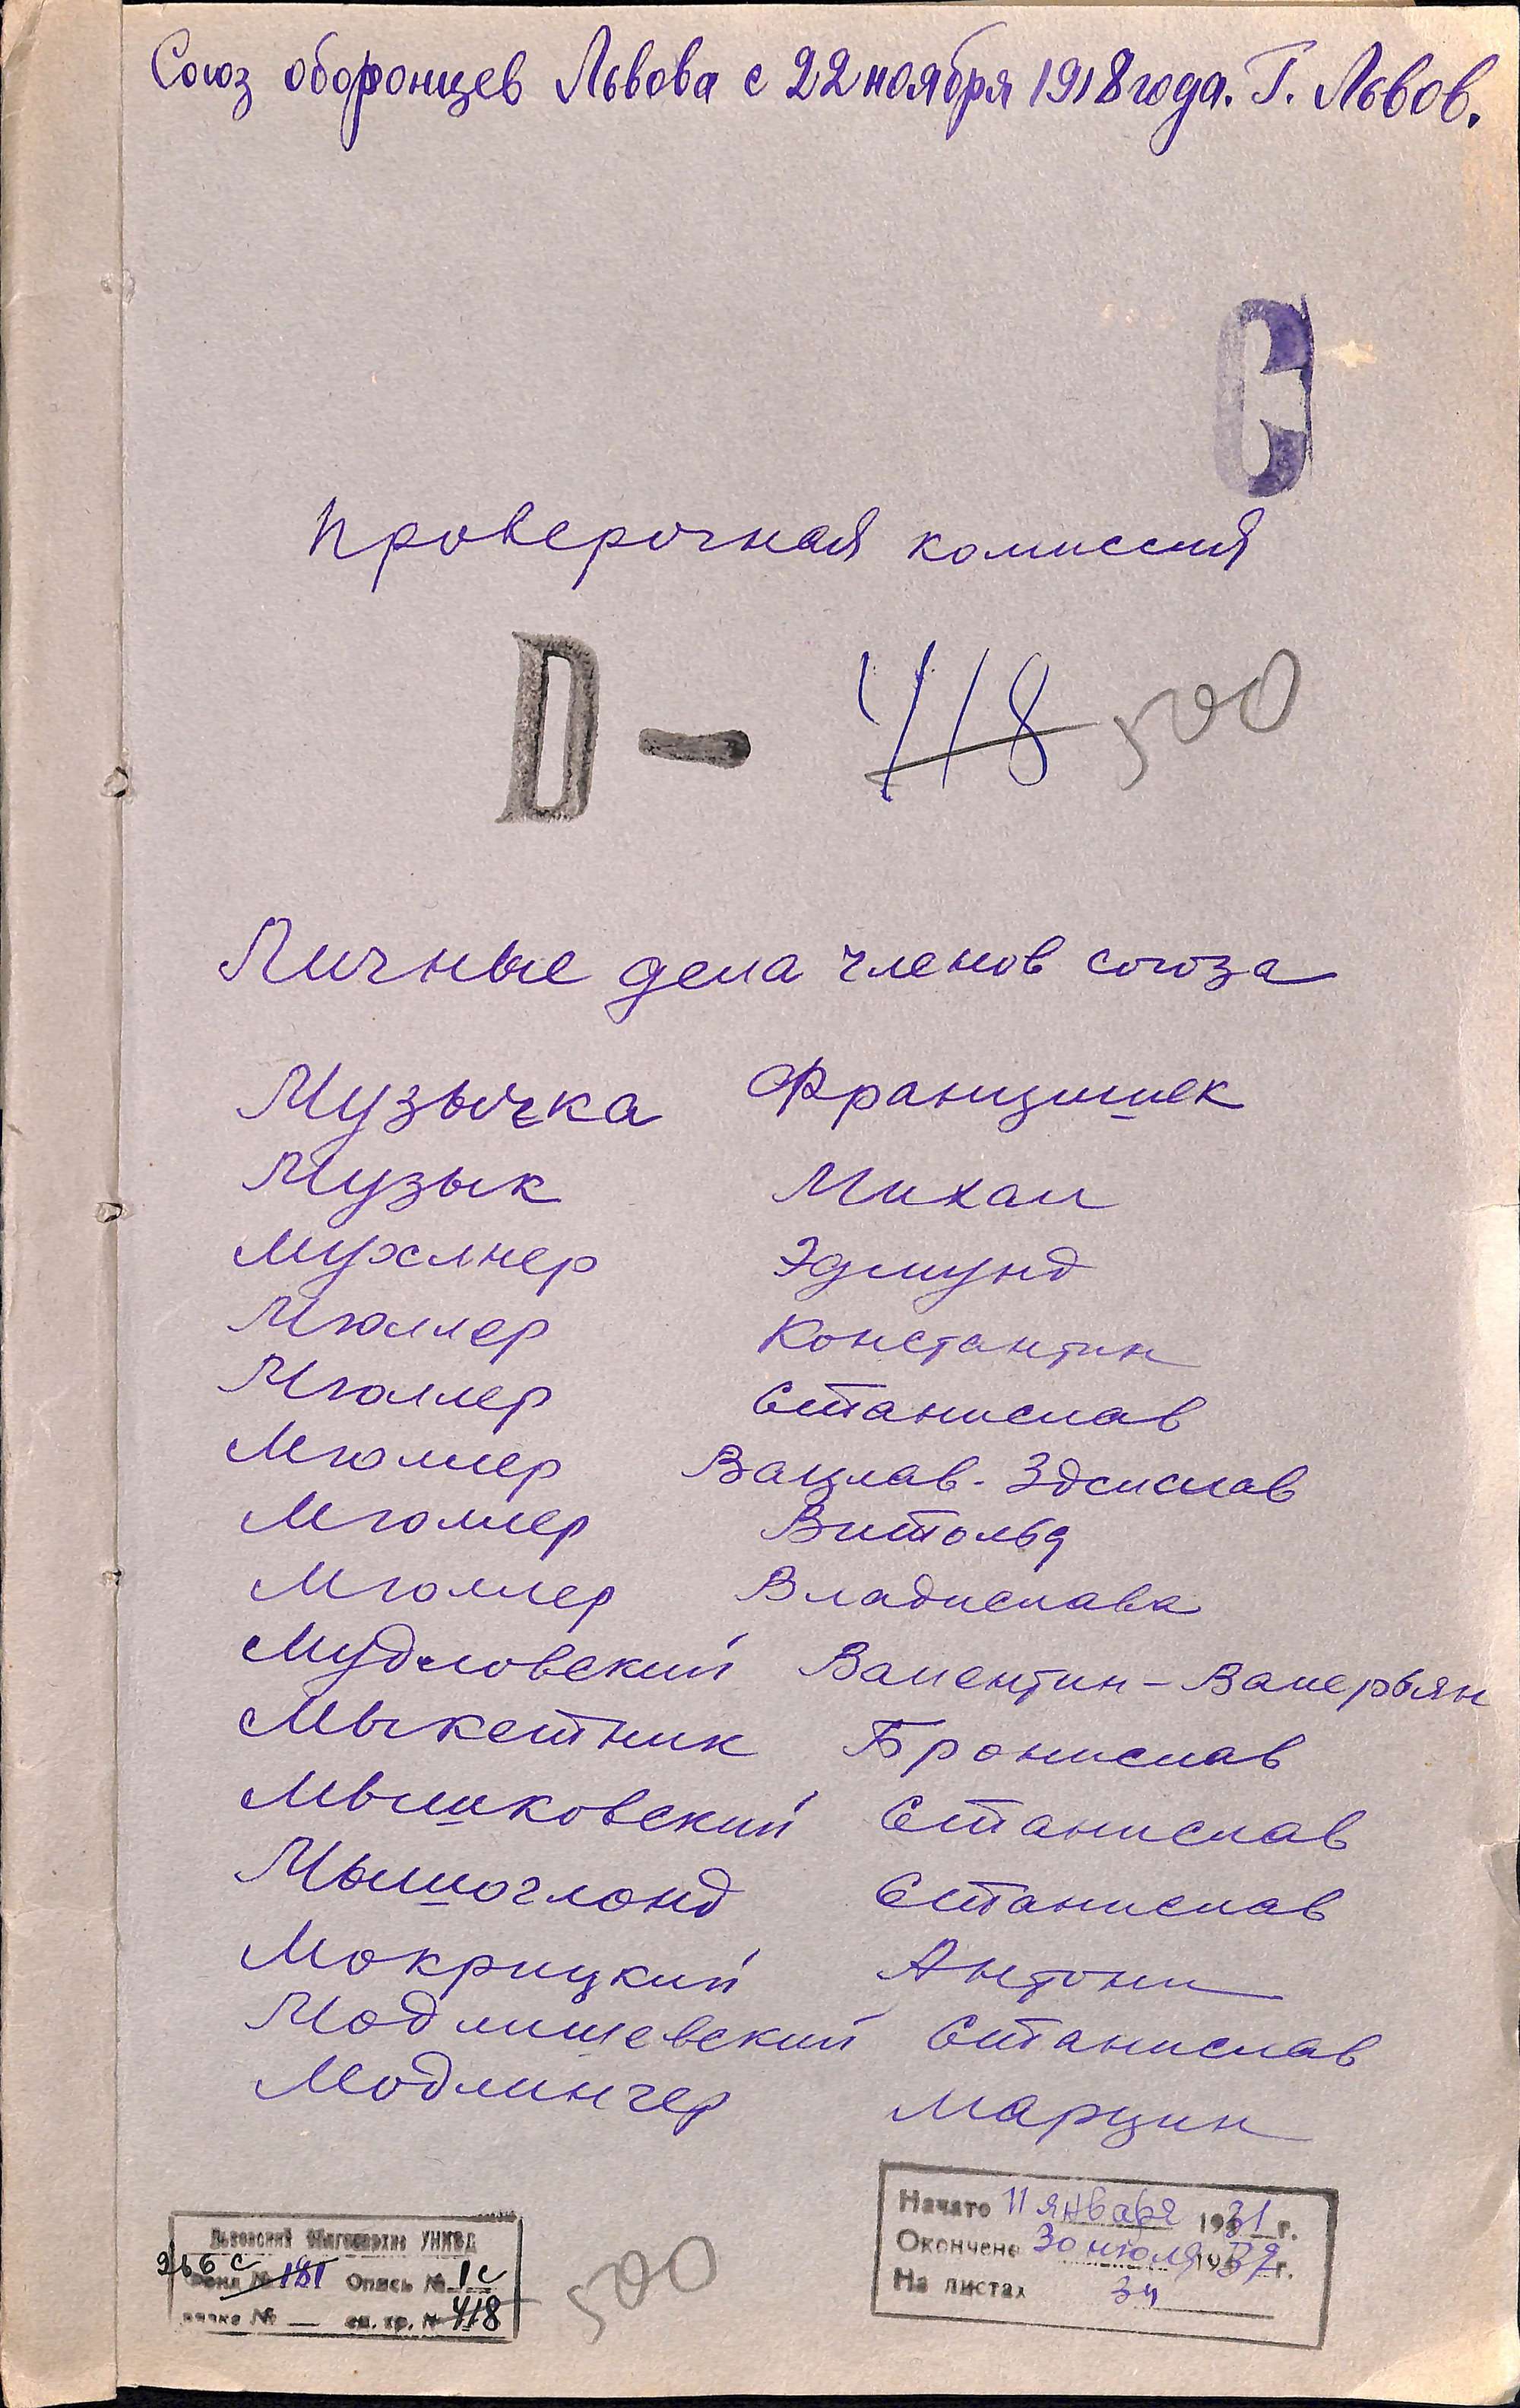 Союз оборонцев Львова с 22 ноября 1918 года. Г. Львов.
С
Проверочная комиссия
D — 418 500
Личные дела членов союза
Музычка Францишек
Музык Михал
Мухлнер Эдмунд
Мюллер Константин
Мюллер Станислав
Мюллер Вацлав-Здислав
Мюллер Витольд
Мюллер Владислава
Мудловский Валентин-Валерьян
Мыкетник Бронислав
Мышковский Станислав
Мышоглонд Станислав
Мокрицкий Антони
Модлишевский Станислав
Модлингер Марцин
Львовский Облгосархив УНКВД
266 с Фонд № 181 Опись № 1с
вязка № — ед. хр. № 418
500
Начато 11 января 1931 г.
Окончено 30 июля 1937 г.
На листах 34